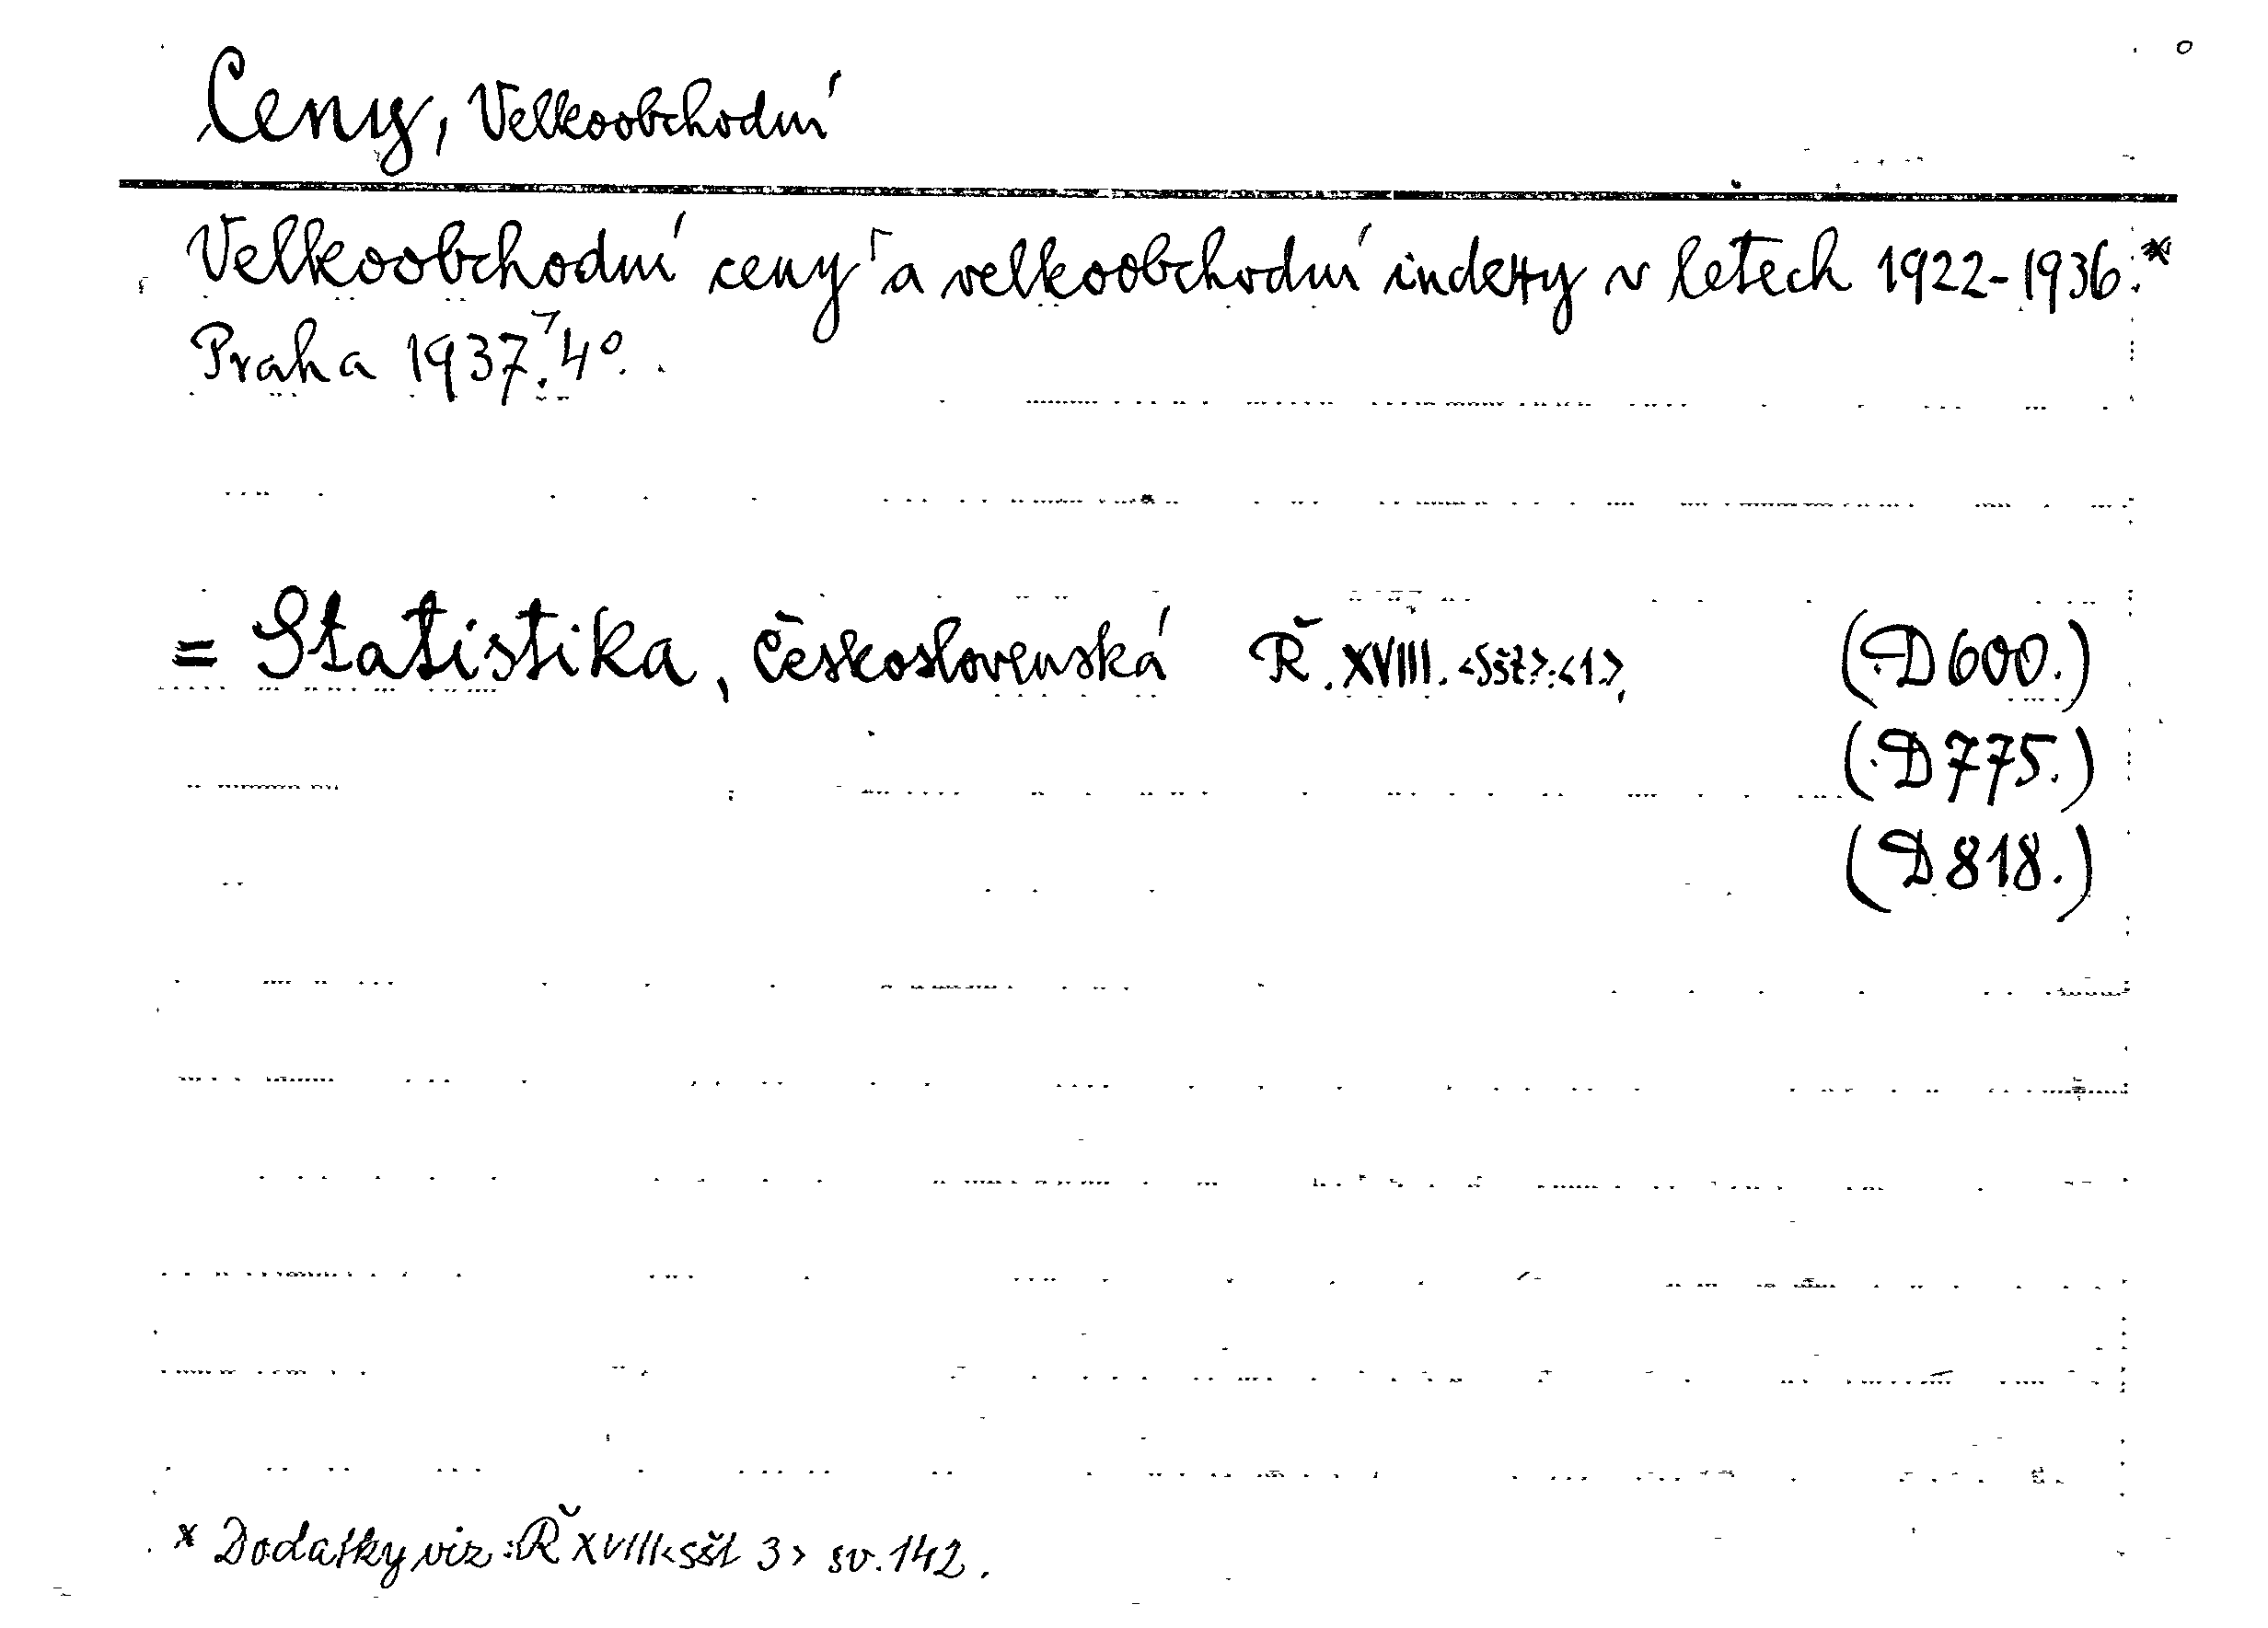 Ceny, Velkoobchodní
Velkoobchodní ceny a velkoobchodní indexy v letech 1922-1936.*
Praha 1937. 4°.
= Statistika, Československá Ř. XVIII. <Sšt>.<1.>. (D 600.)
(D 775.)
(D 818.)
* Dodatky viz: Ř XVIII <sšt 3> sv. 142.